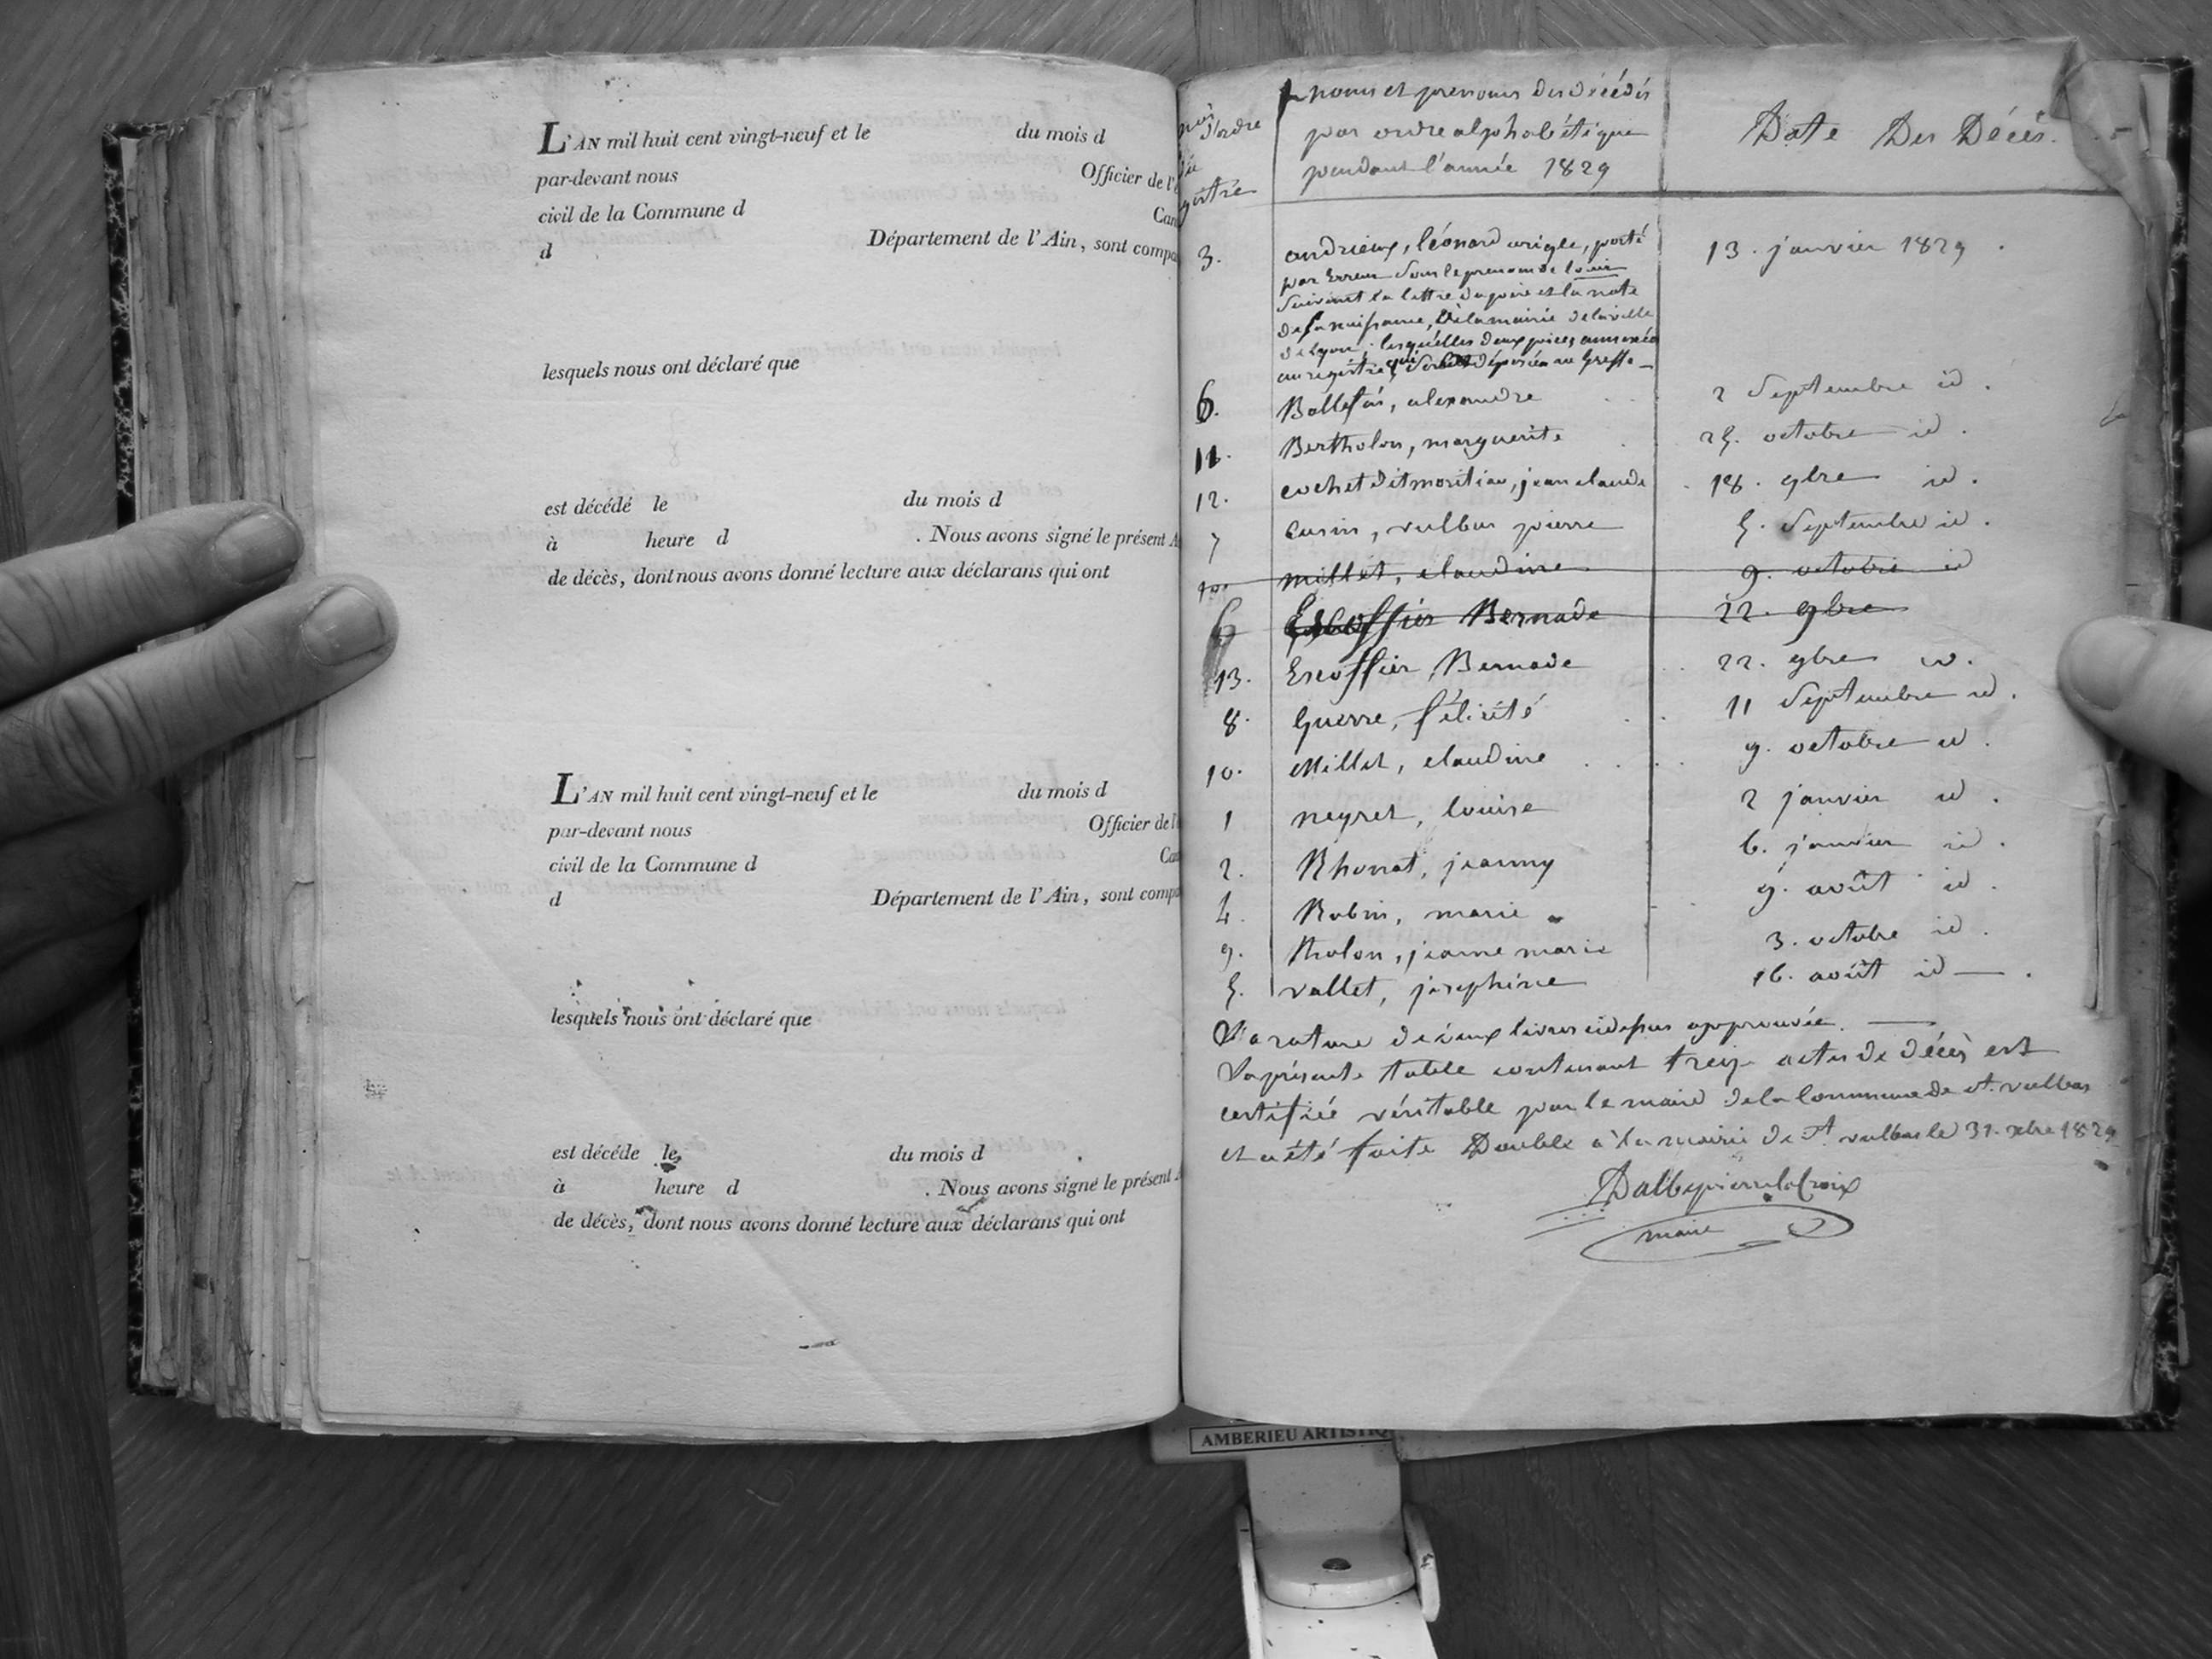 L'AN mil huit cent vingt-neuf et le du mois d
par-devant nous Officier de l'
civil de la Commune d Can
d Département de l'Ain, sont compa
lesquels nous ont déclaré que
est décédé le du mois d
à heure d . Nous avons signé le présent A
de décès, dont nous avons donné lecture aux déclarans qui ont
L'AN mil huit cent vingt-neuf et le du mois d
par-devant nous Officier de l'
civil de la Commune d Ca
d Département de l'Ain, sont comp
lesquels nous ont déclaré que
est décédé le du mois d
à heure d . Nous avons signé le présent
de décès, dont nous avons donné lecture aux déclarans qui ont
nos d'ordre du gistre
noms et prenoms des décédés
par ordre alphabétique
pendant l'année 1829
Date Des Décès.
3. andrieux, léonard porté 13. janvier 1829.
par Erreur sous le prenom de louis
suivant la lettre du païs et la note
de sa naissance, de la mairie de la ville
de lyon; lesquelles deux pièces annexées
au registre, qui déposées au Greffe
6. Ballefin, alexandre 2 Septembre id.
11. Bertholon, marguerite 25. octobre id.
12. cochet dit moritiau, jean claude 18. 9bre id.
7 cusin, vulbas pierre 5. Septembre id.
10. millet, claudine 9. octobre id
6 Escoffier Bernade 22. 9bre
13. Escoffier, Bernade 22. 9bre id.
8. Guerre, félicité 11 Septembre id.
10. Millet, claudine 9. octobre id.
1 neyret, louise 2 janvier id.
2. Rhonat, jeanny 6. janvier id.
4. Robin, marie 9. août id.
9. tholon, jeanne marie 3. octobre id.
5. vallet, josephine 16. août id.
La rature de deux lignes cidessus approuvée.
La présente table contenant treize actes de décès est
certifiée véritable par le maire de la Commune de St. vulbas
et a été faite Double à la mairie de St. vulbas le 31. xbre 1829
Dalby pierre la Croix
maire
AMBERIEU ARTISTIQ